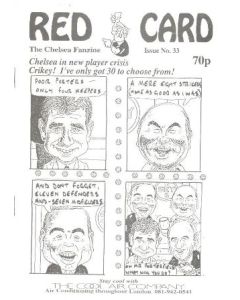 RED CARD
The Chelsea Fanzine
Issue No. 33
70p
Chelsea in new player crisis
Crikey! I've only got 30 to choose from!
POOR PORTERS -
ONLY FOUR KEEPERS
A MERE EIGHT STRIKERS
NONE AS GOOD AS I WAS!
AND DON'T FORGET,
ELEVEN DEFENDERS
AND SEVEN MIDFIELDERS
Stay cool with
THE COOL AIR COMPANY
Air Conditioning throughout London, 081-942-0541